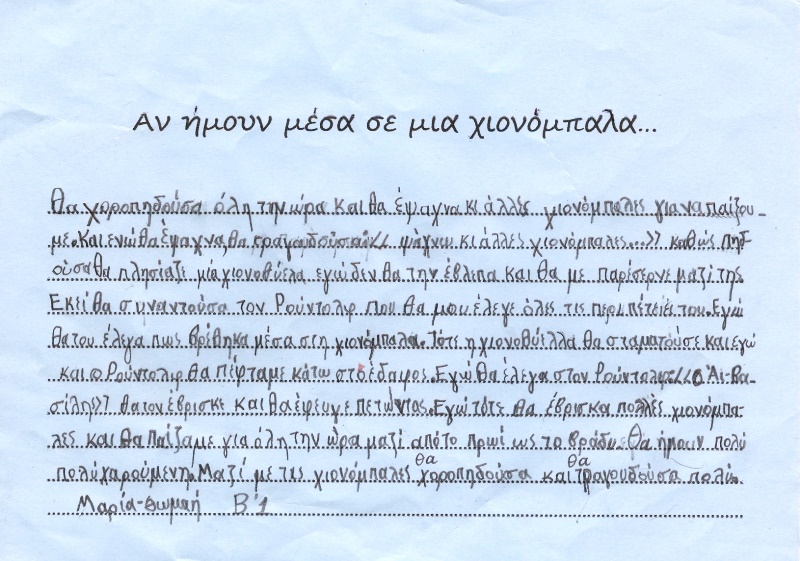 Αν ήμουν μέσα σε μια χιονόμπαλα...
Θα χοροπηδούσα όλη την ώρα και θα έψαχνα κι άλλες χιονόμπαλες για να παίξου-
με. Και ενώ θα έψαχνα, θα τραγουδούσα << ψάχνω κι άλλες χιονόμπαλες...>> καθώς πηδ-
ούσα θα πλησίαζε μία χιονοθύελα εγώ δεν θα την έβλεπα και θα με παρίσερνε μαζί της.
Εκεί θα συναντούσα τον Ρούντολφ που θα μου έλεγε όλες τις περιπέτειές του. Εγώ
θα του έλεγα πως βρέθηκα μέσα στη χιονόμπαλα. Τότε η χιονοθύελλα θα σταματούσε και εγώ
και ο Ρούντολφ θα πέφταμε κάτω στο έδαφος. Εγώ θα έλεγα στον Ρούντολφ: <<Ο Άι-Βα-
σίλης>> θα τον έβρισκε και θα έφευγε πετώντας. Εγώ τότε θα έβρισκα πολλές χιονόμπα-
λες και θα παίζαμε για όλη την ώρα μαζί από το πρωί ως το βράδυ. Θα ήμουν πολύ
πολύ χαρούμενη. Μαζί με τις χιονόμπαλες θα χοροπηδούσα και θα τραγουδούσα πολύ.
Μαρία-Θωμαή Β'1